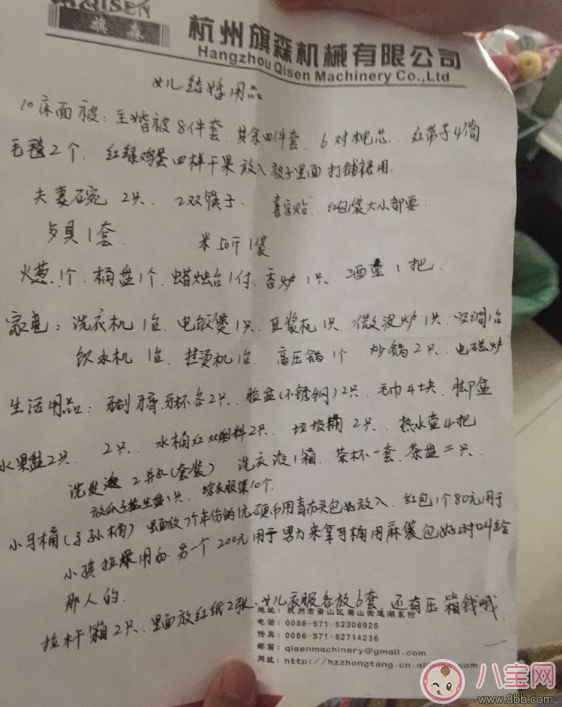 QISEN
旗森
杭州旗森机械有限公司
Hangzhou Qisen Machinery Co.,Ltd
女儿结婚用品
10床面被：主婚被8件套、其余四件套、6对枕芯、红带子4筒
毛毯2个、红绿鸡蛋四样干果放入被子里面打铺裙用
夫妻碗2只、2双筷子、喜字贴、红包袋大小都要
1套、米50斤1袋
火葱1个、桶盘1个、蜡烛台1付、香炉1只、酒壶1把、
家电：洗衣机1台、电饭煲1只、豆浆机1只、微波炉1只、空调1台
饮水机1台、挂烫机1台、高压锅1个、炒锅2只、电磁炉
生活用品：牙刷牙膏牙杯各2只、脸盆(不锈钢)2只、毛巾4块、脚盆
水果盘2只、2只、水桶红双塑料2只、垃圾桶2只、热水壶4把
洗发液2瓶(套装)洗衣液1箱、茶杯一套、茶盘二只、
放瓜子盘1只、晾衣服架10个、
小马桶(子孙桶)里面放7个年份的1元硬币用青布夹包好放入、红包1个80元用于
小孩拉尿用的另一个200元用于男方来拿马桶用麻袋包好时叫去给
那人的、
拉杆箱2只、里面放红纸2张、女儿衣服各放6套 还有压箱钱哦
地址：杭州市萧山区
电话：0086-571-82306926
传真：0086-571-82714236
邮箱：qisenmachinery@gmail.com
网址：http://hzzhongtang.cn.
八宝网
www.8bb.com